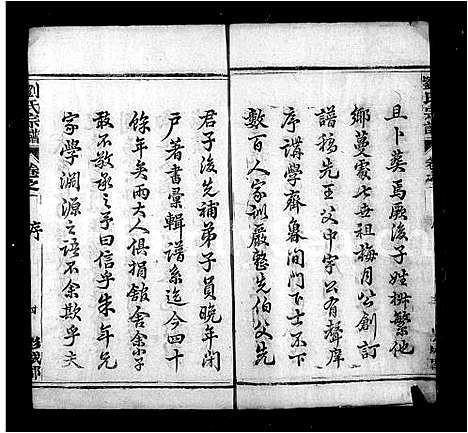 且卜葬焉厥後子姓拚繁他
鄉蔓處七世祖梅月公創訂
譜稿先王父中字公有聲庠
序講學齊魯間門下士不下
數百人家訓嚴整先伯父先
君子後先補弟子員晚年閉
戶著書彙輯譜系迄今四十
餘年矣兩大人俱捐館舍余小子
敢不敬承之予曰信乎朱年兄
家學淵源之語不余欺乎夫
劉氏宗譜
卷之
序
四
彭城郡